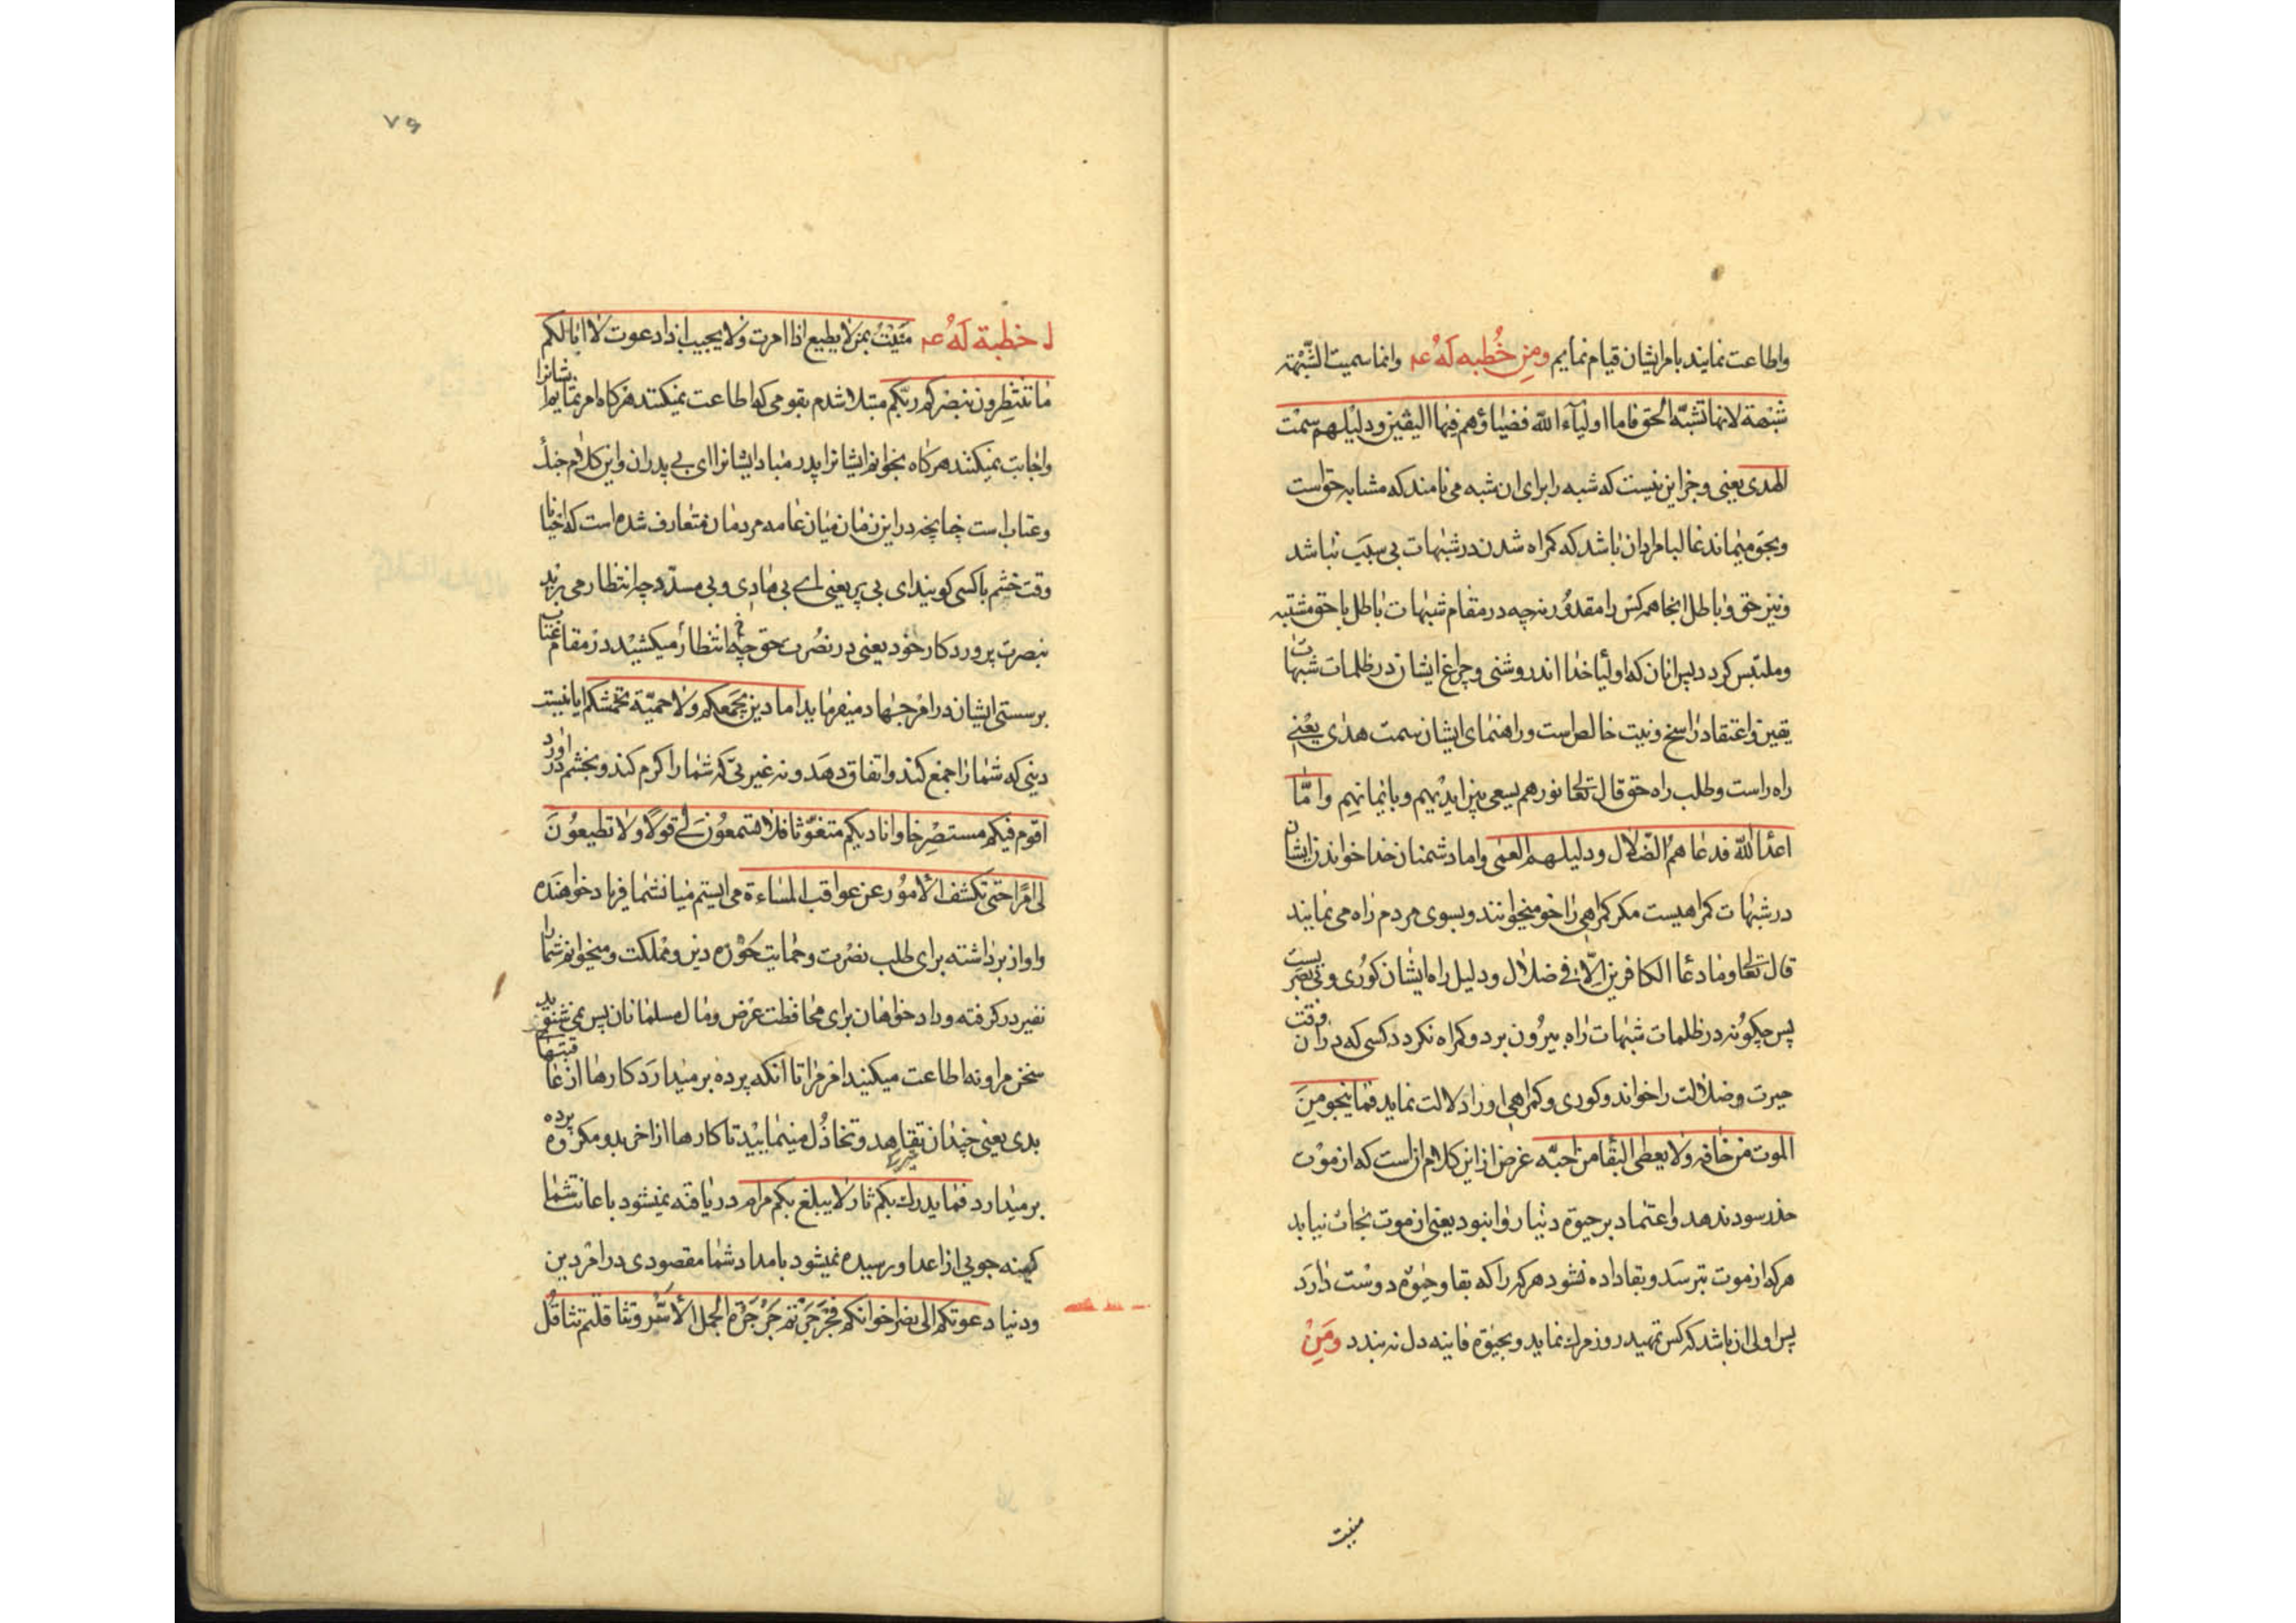 واطاعت نمایند بامر ایشان قیام نمایم ومن خُطبه لَهُ عم وانما سمیت الشّبْهة
شبْهة لانها تشبّه الحق فاما اولیآء الله فضیاؤهم فیها الیقین ودلیلهم سمْت
الهدی یعنی وجز این نیست که شبه را برای ان شبه می نامند که مشابه حق است
وبحق میماند غالبا مراد ان باشد که کمراه شدن در شبهات بی سبب نباشد
ونیز حق وباطل انجا همه کس را مقدور نه چه در مقام شبهات باطل باحق مشتبه
وملتبس کردد پس انان که اولیا خدا اند روشنی وچراغ ایشان در ظلمات شبهات
یقین واعتقاد راسخ ونیت خالص است وراهنمای ایشان سمت هدی یعنی
راه راست وطلب راه حق قال تعالی نورهم یسعی بین ایدیهم وبایمانهم وامّا
اعدا الله فدعاهمُ الضّلال ودلیلهم العمی واما دشمنان خدا خواندن ایشان
در شبهات کمراهیست مکر کمراهی را خو میخوانند وبسوی مردم راه می نمایند
قال تعالی وما دعا الکافرین الّا فی ضلال ودلیل راه ایشان کوری وبی بصریست
پس چکونه در ظلمات شبهات راه بیرون برد وکمراه نکردد کسی که در ان وقت
حیرت وضلالت را خواند وکوری وکمراهی اورا دلالت نماید فما ینجو مِنَ
الموت من خافه ولا یعطی البقا من احبّه غرض از این کلام ان است که از موت
حذر سود ندهد واعتماد بر حیوة دنیا روا نبود یعنی از موت نجات نیابد
هرکه از موت بترسد وبقا داده نشود هرکه را که بقا وحیوة دوست دارَد
پس اولی ان باشد که کس تهید روز مرك نماید وبحیوة فانیه دل نه بندد ومَنِ
منیت
٧٩
خطبة لَهُ عم مُنیْتُ بمن لا یطیع اذا امرت ولا یجیب اذا دعوت لا ابا لکم
ما تنتظرون بنصرکم ربّکم مبتلا شدم بقومی که اطاعت نمیکنند هرکاه امر نمایم ایشانرا
واجابت نمیکنند هرکاه بخوانم ایشانرا پدر مباد ایشانرا ای بی پدران واین کلام
وعتاب است چنانچه در این زمان میان عامه مردمان متعارف شده است که احیانا
وقت خشم باکسی کویند ای بی پر یعنی اے بی هادی وبی مسدّد چه انتظار می برید
بنصرت پروردکار خود یعنی در نصرت حق چه انتظار میکشید در مقام عتاب
بر سستی ایشان در امر جهاد میفرماید اما دین یجمعکم ولا حمیّة تحمشکم ایا نیست
دینی که شما را جمع کند واتفاق دهد ونه غیرتی که شما را کرم کند وبخشم در اورد
اقوم فیکم مستصْرِخا وانادیکم متغوّثا فلا تسمعُون لی قولًا ولا تطیعُونَ
لی امرًا حتی تکشف الامُور عن عواقب المساءة می ایستم میان شما فریاد خواهنده
واواز برداشته برای طلب نصرت وحمایت حوزه دین ومملکت ومیخوانم شما را
نفیر در کرفته وداد خواهان برای محافظت عرض ومال مسلمانان پس نمی شنوید
سخن مرا ونه اطاعت میکنید امر مرا تا انکه پرده برمیدارَد کارها از عاقبتهای
بدی یعنی چندان تقاهد وتخاذُل مینمایید تا کارها از اخر بد ومکروه پرده
برمیدارد فما یدرك بکم ثار ولا یبلغ بکم مرام دریافته نمیشود باعانت شما
کینه جویی از اعدا ورسیده نمیشود بامداد شما مقصودی در امر دین
ودنیا دعوتکم الی نصر اخوانکم فجَرجَرتم جَرْجَرة الجمل الاسّر وتثاقلتم تثاقُل